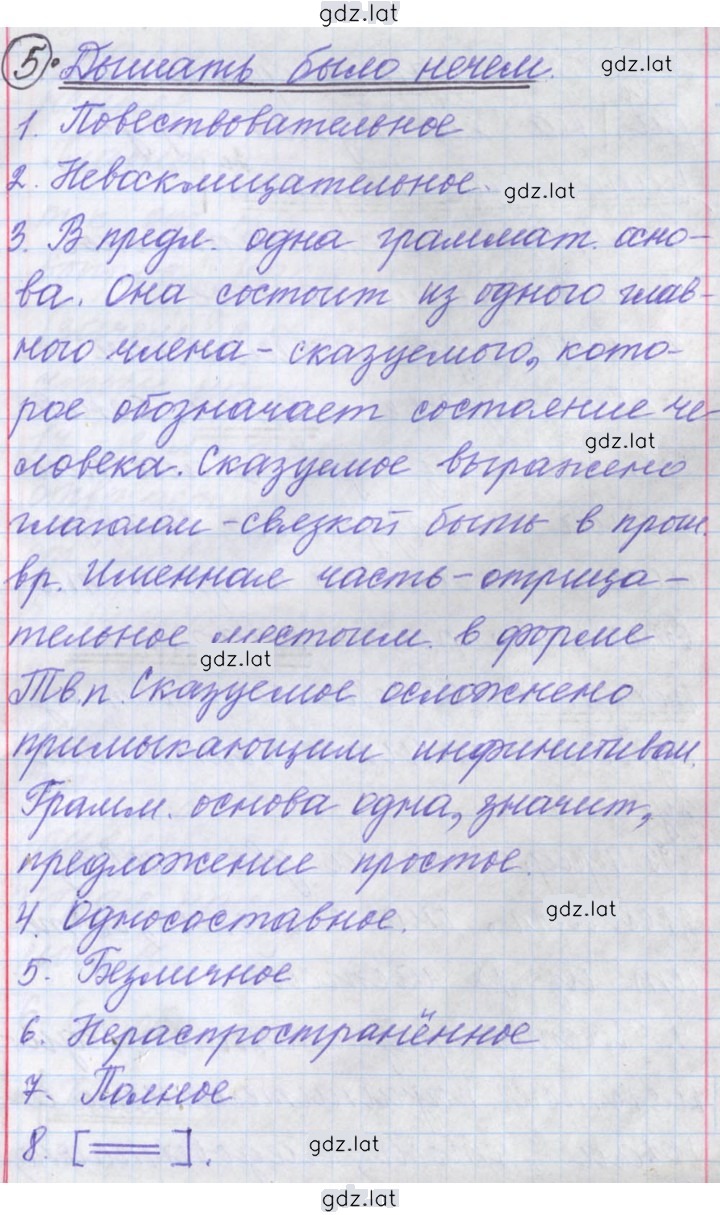 gdz.lat
5. Дышать было нечем. gdz.lat
1. Повествовательное
2. Невосклицательное. gdz.lat
3. В предл. одна граммат. осно-
ва. Она состоит из одного глав-
ного члена - сказуемого, кото-
рое обозначает состояние че-
gdz.lat
ловека. Сказуемое выражено
глаголом-связкой быть в прош.
вр. Именная часть - отрица-
тельное местоим. в форме
gdz.lat
Тв.п. Сказуемое осложнено
примыкающим инфинитивом.
Грамм. основа одна, значит,
предложение простое.
4. Односоставное. gdz.lat
5. Безличное
6. Нераспространённое
7. Полное
8. [═══]. gdz.lat
gdz.lat